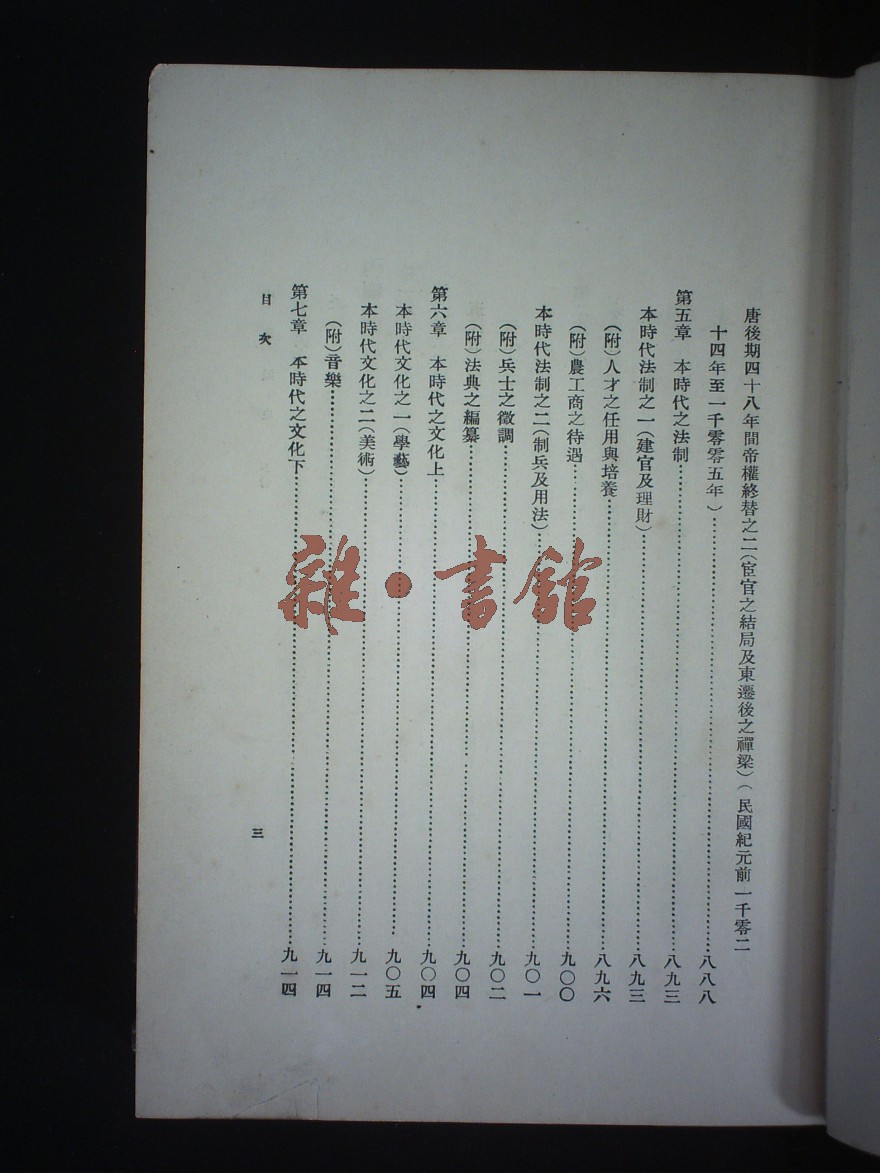 唐後期四十八年間帝權終替之二(宦官之結局及東遷後之禪梁)(民國紀元前一千零二
十四年至一千零零五年)……八八八
第五章　本時代之法制……八九三
本時代法制之一(建官及理財)……八九三
(附)人才之任用與培養……八九六
(附)農工商之待遇……九〇〇
本時代法制之二(制兵及用法)……九〇一
(附)兵士之徵調……九〇二
(附)法典之編纂……九〇四
第六章　本時代之文化上……九〇四
本時代文化之一(學藝)……九〇五
本時代文化之二(美術)……九一二
(附)音樂……九一四
第七章　本時代之文化下……九一四
目次
三
雜·書館